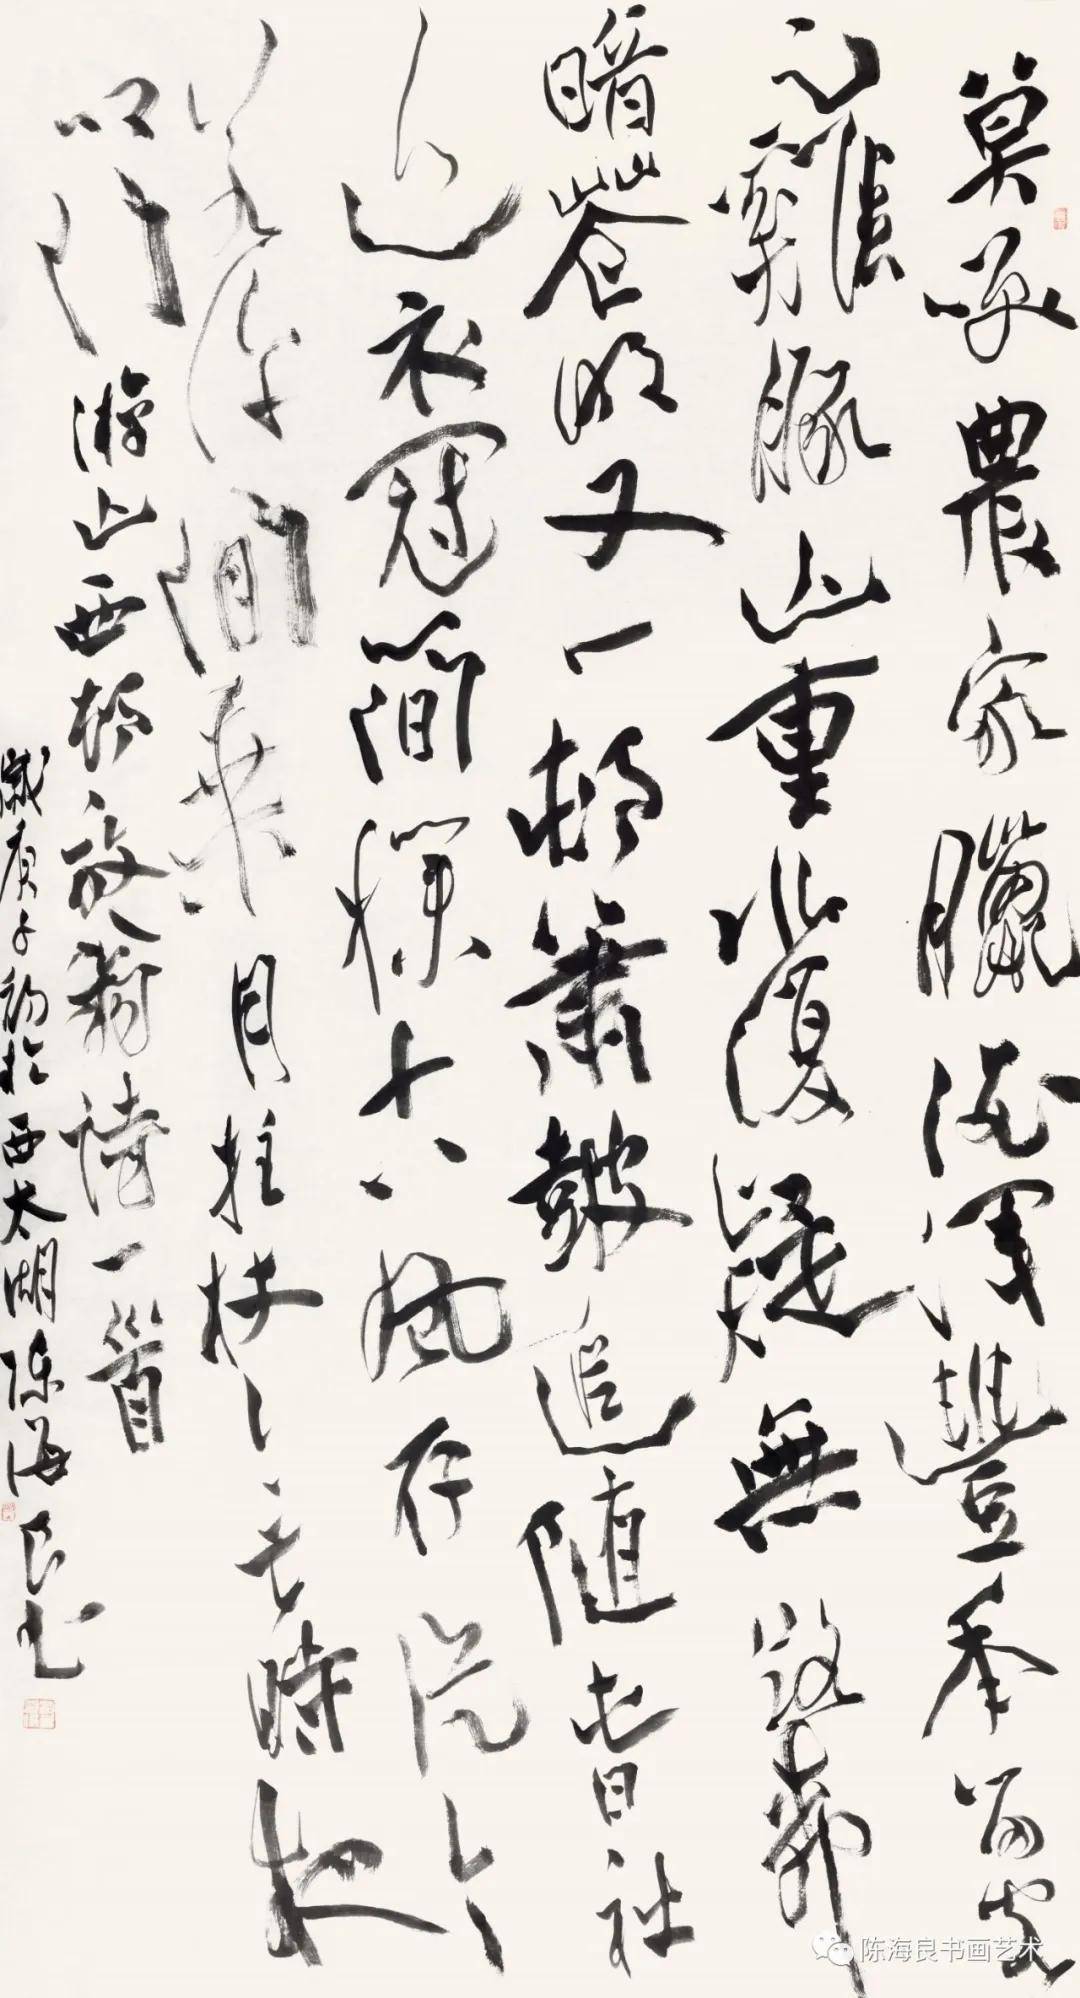 莫咲農家臘酒渾豐年留客
足雞豚山重水復疑無路柳
暗花明又一村簫皷追随旾社
近衣冠簡樸古風存從今
若許閒乘月拄杖無時夜
叩門 游山西村放翁詩一首
歲庚子初於西太湖陳海良書
陈海良书画艺术